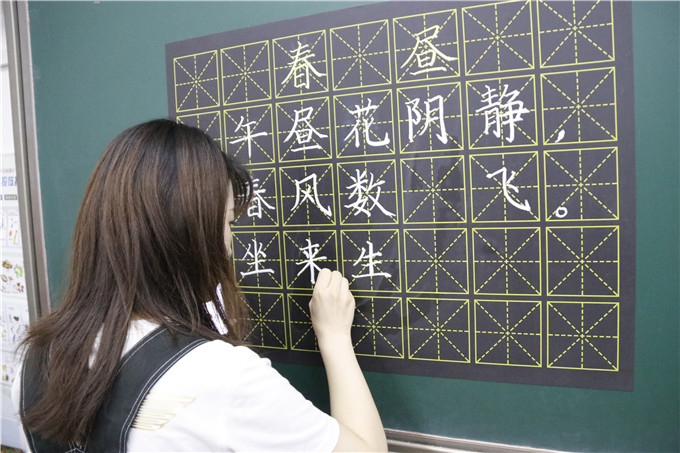 春昼
午昼花阴静，
春风数 飞。
坐来生